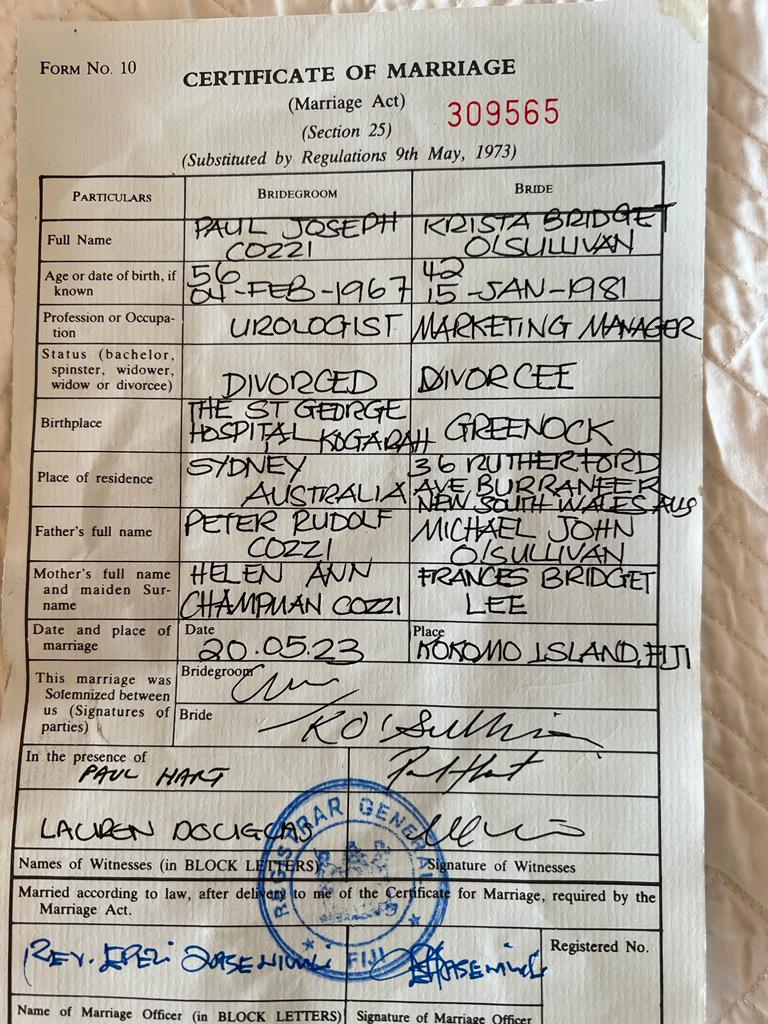 FORM NO. 10
CERTIFICATE OF MARRIAGE
(Marriage Act)
309565
(Section 25)
(Substituted by Regulations 9th May, 1973)
PARTICULARS BRIDEGROOM BRIDE
Full Name PAUL JOSEPH COZZI KRISTA BRIDGET O'SULLIVAN
Age or date of birth, if known 56 04-FEB-1967 42 15-JAN-1981
Profession or Occupation UROLOGIST MARKETING MANAGER
Status (bachelor, spinster, widower, widow or divorcee) DIVORCED DIVORCEE
Birthplace THE ST GEORGE HOSPITAL KOGARAH GREENOCK
Place of residence SYDNEY AUSTRALIA 36 RUTHERFORD AVE BURRANEER NEW SOUTH WALES AUS
Father's full name PETER RUDOLF COZZI MICHAEL JOHN O'SULLIVAN
Mother's full name and maiden Surname HELEN ANN CHAMPMAN COZZI FRANCES BRIDGET LEE
Date and place of marriage Date 20.05.23 Place KOKOMO ISLAND, FIJI
This marriage was Solemnized between us (Signatures of parties)
Bridegroom
Bride KO'Sullivan
In the presence of
PAUL HART Paul Hart
LAUREN DOUGLAS
Names of Witnesses (in BLOCK LETTERS) Signature of Witnesses
REGISTRAR GENERAL FIJI
Married according to law, after delivery to me of the Certificate for Marriage, required by the
Marriage Act.
REV. EPELI
Registered No.
Name of Marriage Officer (in BLOCK LETTERS) Signature of Marriage Officer